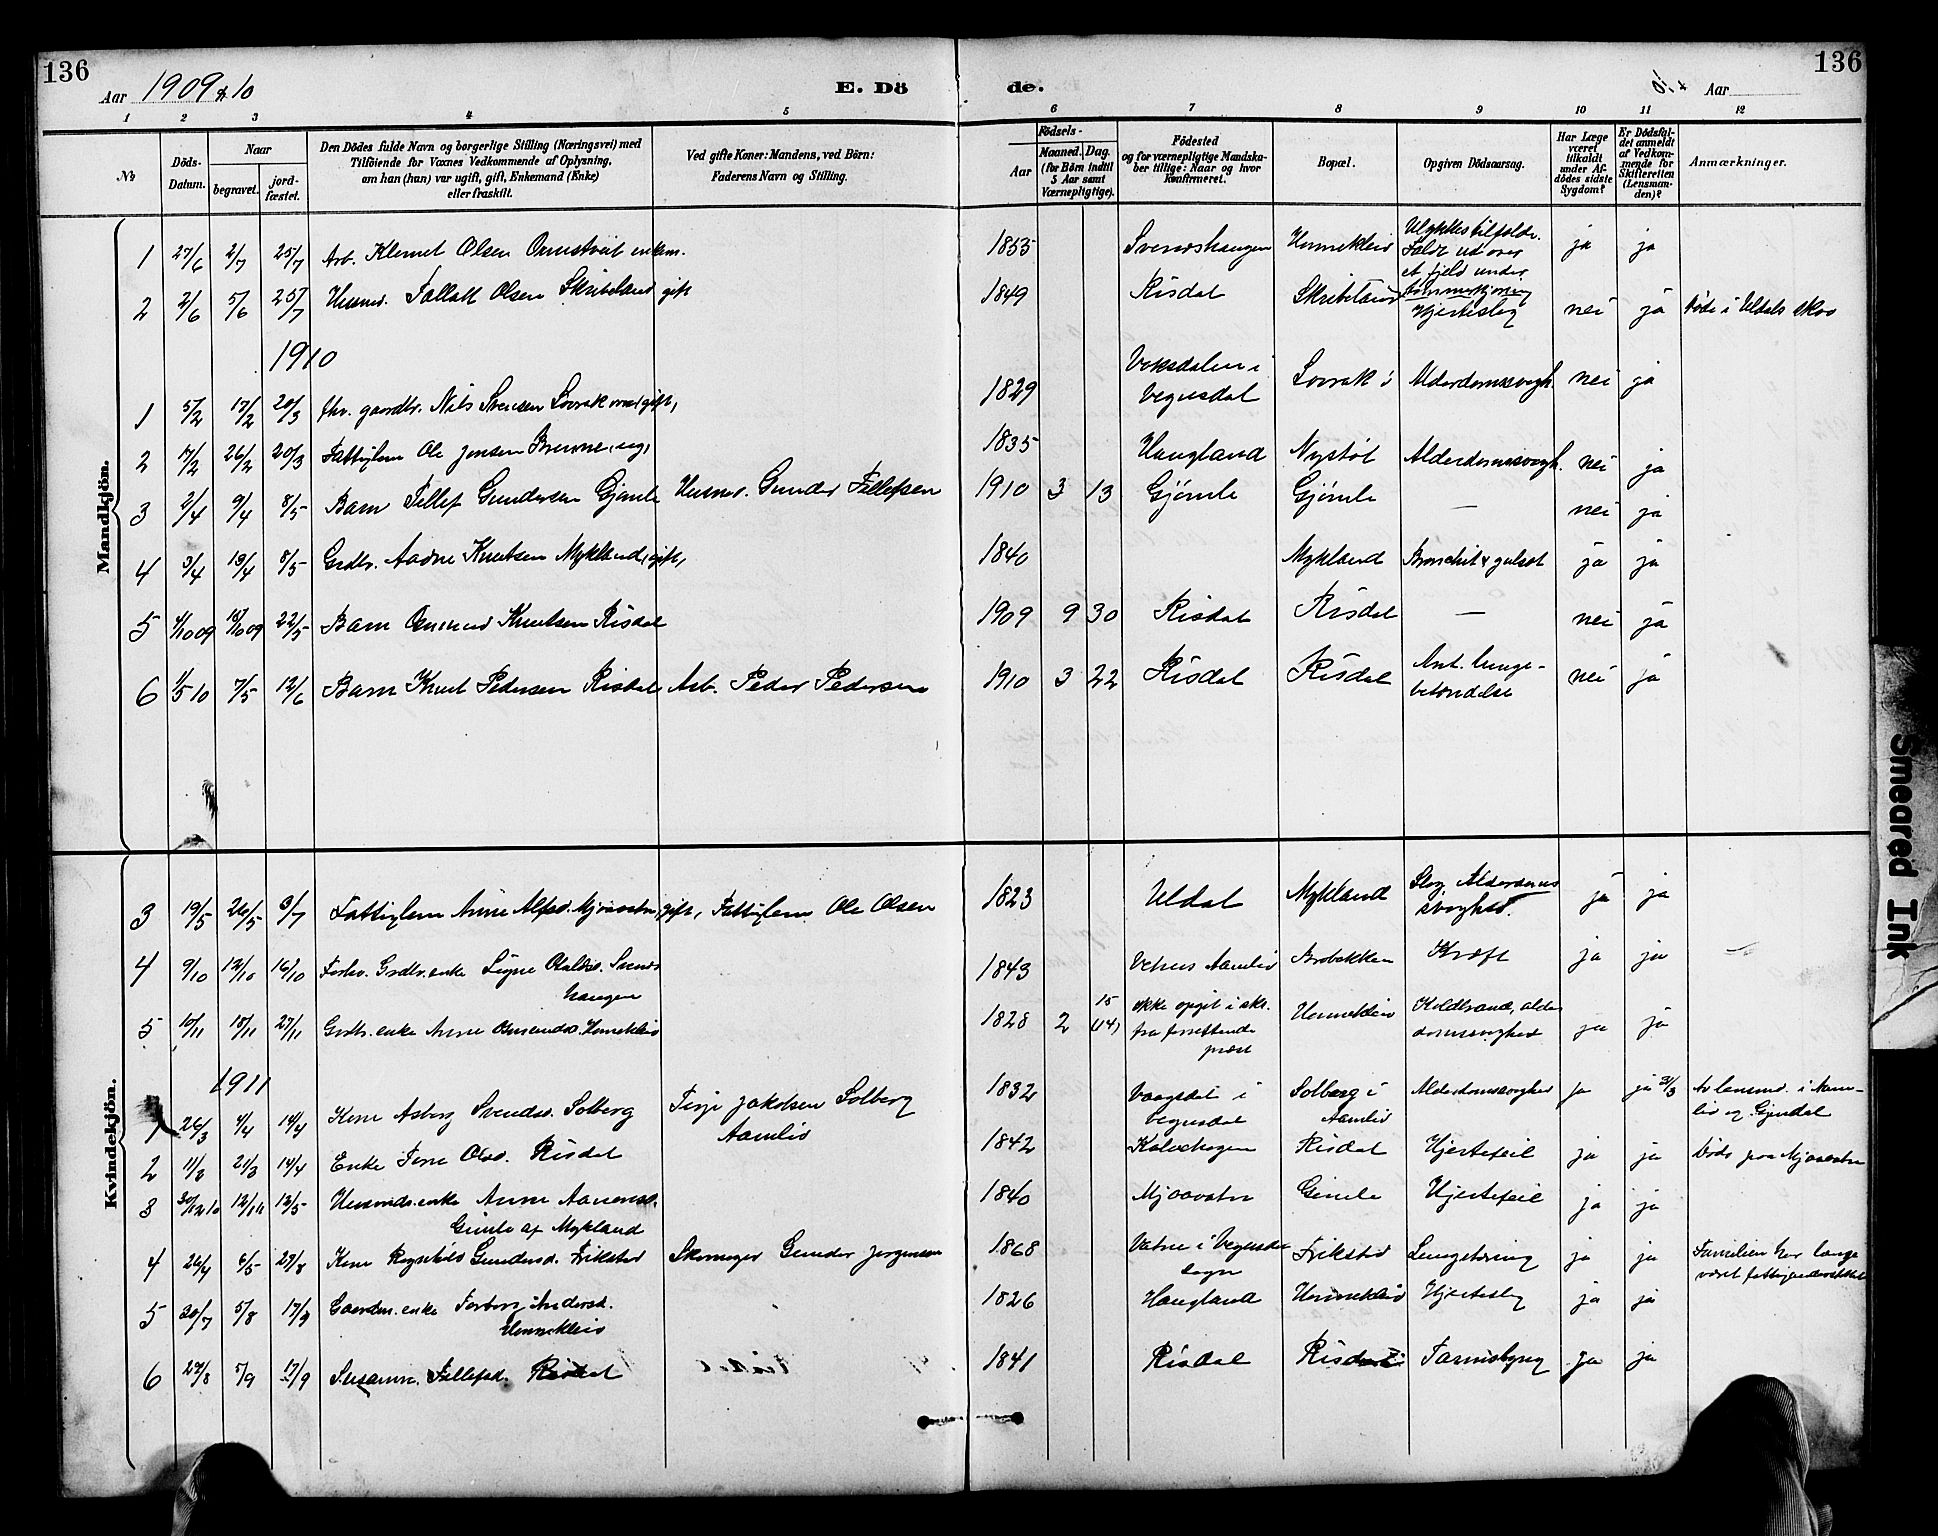 136
136
Aar 1909 & 10
E. Dö
de.
& 10 Aar
1 2 3 4 5 6 7 8 9 10 11 12
No
Döds-Datum.
Naar
begravet.
jord-fæstet.
Den Dödes fulde Navn og borgerlige Stilling (Næringsvei) med
Tilföiende for Voxnes Vedkommende af Oplysning,
om han (hun) var ugift, gift, Enkemand (Enke)
eller fraskilt.
Ved gifte Koner: Mandens, ved Börn:
Faderens Navn og Stilling.
Födsels-
Aar
Maaned. Dag.
(for Börn indtil
5 Aar samt
Værnepligtige).
Födested
og for værnepligtige Mandska-
ber tillige: Naar og hvor
konfirmeret.
Bopæl.
Opgiven Dödsaarsag.
Har Læge
været
tilkaldt
under Af-
dödes sidste
Sygdom?
Er Dödsfal-
det anmeldt
af Vedkom-
mende for
Skifteretten
(Lensman-
den)?
Anmærkninger.
Mandkjön.
1 27/6 2/7 25/7 Arb. Klemet Olsen Ormstveit enkem. 1853 Svendshaugen Hennekleiv Ulykkestilfælde. Faldt ud over et fjeld under tømmerkjøring ja ja
2 2/6 5/6 25/7 Husmd. Tallak Olsen Skribeland gift 1849 Risdal Skribeland Hjerteslag nei ja Døde i Uldals skov
1910
1 5/2 17/2 20/3 fhv. gaardbr. Nils Svensen Lovrak gift, 1829 Voksdalen i Vegusdal Lovrak Alderdomssvagh. nei ja
2 17/2 26/2 20/3 Fattiglem Ole Jensen ug, 1835 Haugland Nystøl Alderdomssvagh. nei ja
3 2/4 9/4 8/5 Barn Tellef Gundersen Gjømle Husmd. Gunder Tellefsen 1910 3 13 Gjømle Gjømle — nei ja
4 3/4 13/4 8/5 Grdbr. Aadne Knutsen Mykland, gift, 1840 Mykland Bronchit & gulsot ja ja
5 4/10 09 10/10 09 22/5 Barn Omund Knutsen Risdal 1909 9 30 Risdal Risdal — nei ja
6 1/5 10 7/5 12/6 Barn Knut Pedersen Risdal Arb. Peder Pedersen 1910 3 22 Risdal Risdal Ant. lunge-betændelse nei ja
Kvindekjön.
3 19/5 26/5 3/7 Fattiglem Anne Alfsd. Mjaavatn, gift, Fattiglem Ole Olsen 1823 Uldal Mykland Slag Alderdoms svaghed. ja ja
4 9/10 12/10 16/10 Forhv. Grdbr. enke Signe Olalsd. Svends haugen 1843 Vehus Aamli Brobakken Kræft ja ja —
5 10/11 18/11 27/11 Grdbr. enke Anne Omundsd. Hennekleiv 1828 2 15 (14) ikke opgit i skr. fra forrettende præst Hennekleiv Koldbrand, alder domssvaghed ja ja
1911
1 26/3 4/4 14/4 Kone Asborg Svendsd. Solberg Terje Jakobsen Solberg Aamli 1832 Vaagsdal i Vegusdal Solberg i Aamli Alderdomssvaghed ja ja 31/3 Av lensmd. i Aam-li og Gjøvdal
2 11/2 21/3 14/4 Enke Tone Olsd. Risdal 1842 Kalvehagen Risdal Hjertefeil ja ja Døde paa Mjaavatn
3 30/12 10 12/1 11 12/5 Husmds. enke Anne Aanensd. Gimle af Mykland 1840 Mjaavatn Gimle Hjertefeil ja ja
4 26/4 6/5 27/8 Kone Ragnhild Gundersd. Frikstad Skomager Gunder Jørgensen 1868 Vatne i Vegusdal sogn Frikstad Lungetæring ja ja Familien har længe været fattigunderstøttet
5 30/7 5/8 17/9 Gaardm. enke Torborg Andersd. Hennekleiv 1826 Haugland Hennekleiv Hjerteslag ja ja
6 29/8 5/9 17/9 Susanne Tellefsd. Risdal 1841 Risdal Risdal Tarmslyng ja ja
Smeared Ink